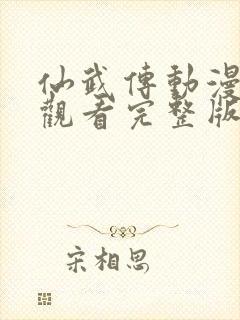 仙武傳動漫
觀看完整版
宋相思